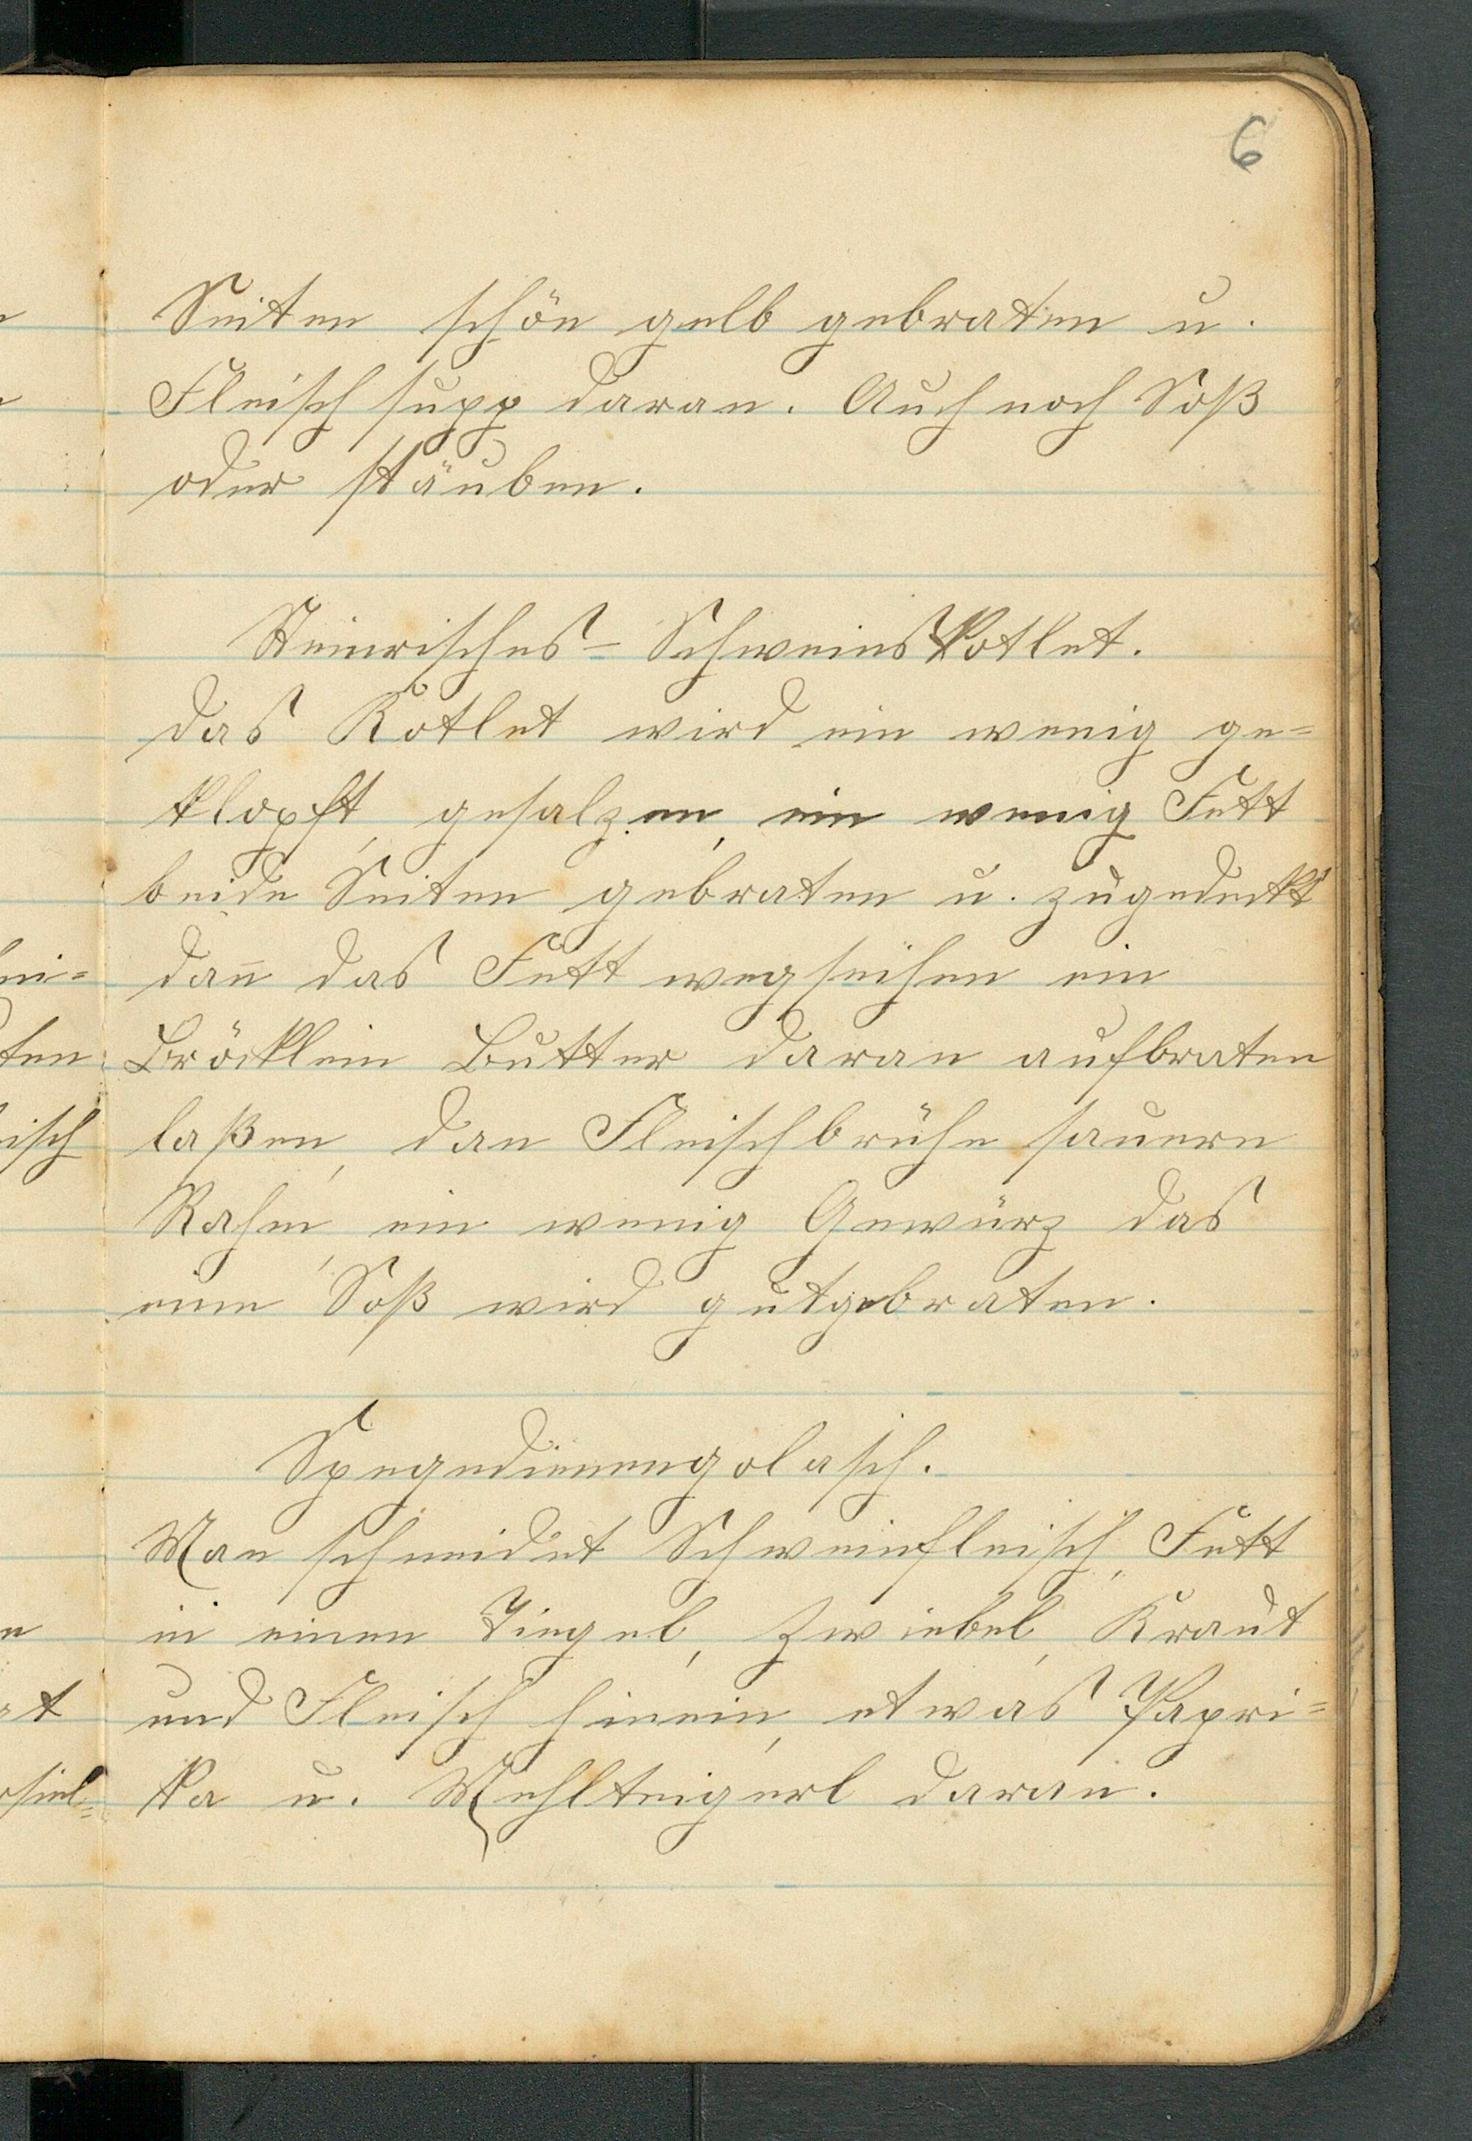 6
Seiten schön gelb gebraten u.
Fleischsupp daran. Auch noch Soß
oder stäuben.
Steirisches- Schweinskotlet.
das Kotlet wird ein wenig ge=
klopft, gesalzen, ein wenig Fett
beide Seiten gebraten u. zugedeckt
dan̄ das Fett wegseihen ein
Bröcklein Butter daran aufbraten
laßen, dan Fleischbrühe sauern
Rahm, ein wenig Gewürz das
eine Soß wird gutgebraten.
Spegedienengolasch.
Man schneidet Schweinfleisch, Fett
in einen Tiegel, Zwiebel, Kraut
und Fleisch hinein, etwas Papri=
ka u. Mehlteigerl daran.